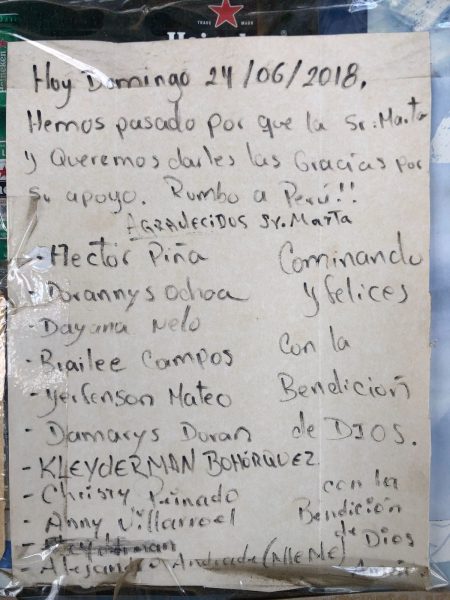 TRADE MARK
Heineken
Hoy Domingo 24/06/2018.
Hemos pasado por que la Sr. Marta
y Queremos darles las Gracias por
su apoyo. Rumbo a Perú!!
AGRADECIDOS Sr. Marta
- Hector Piña Caminando
- Dorannys Ochoa y felices
- Dayana Melo
- Brailee Campos con la
- Yerfenson Mateo Bendición
- Damarys Duran de DIOS.
- KLEYDERMAN BOHÓRQUEZ
- Christy Peinado con la
- Anny Villarroel Bendición
- de Dios
- Alejandro Andrade (NENE)